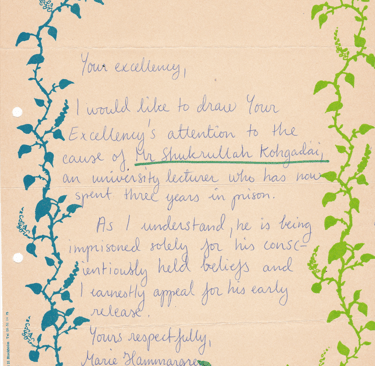 Your excellency,
I would like to draw Your
Excellency's attention to the
cause of Mr Shukrullah Kohgadai,
an university lecturer who has now
spent three years in prison.
As I understand, he is being
imprisoned solely for his consc-
ientiously held beliefs and
I earnestly appeal for his early
release.
Yours respectfully,
Marie